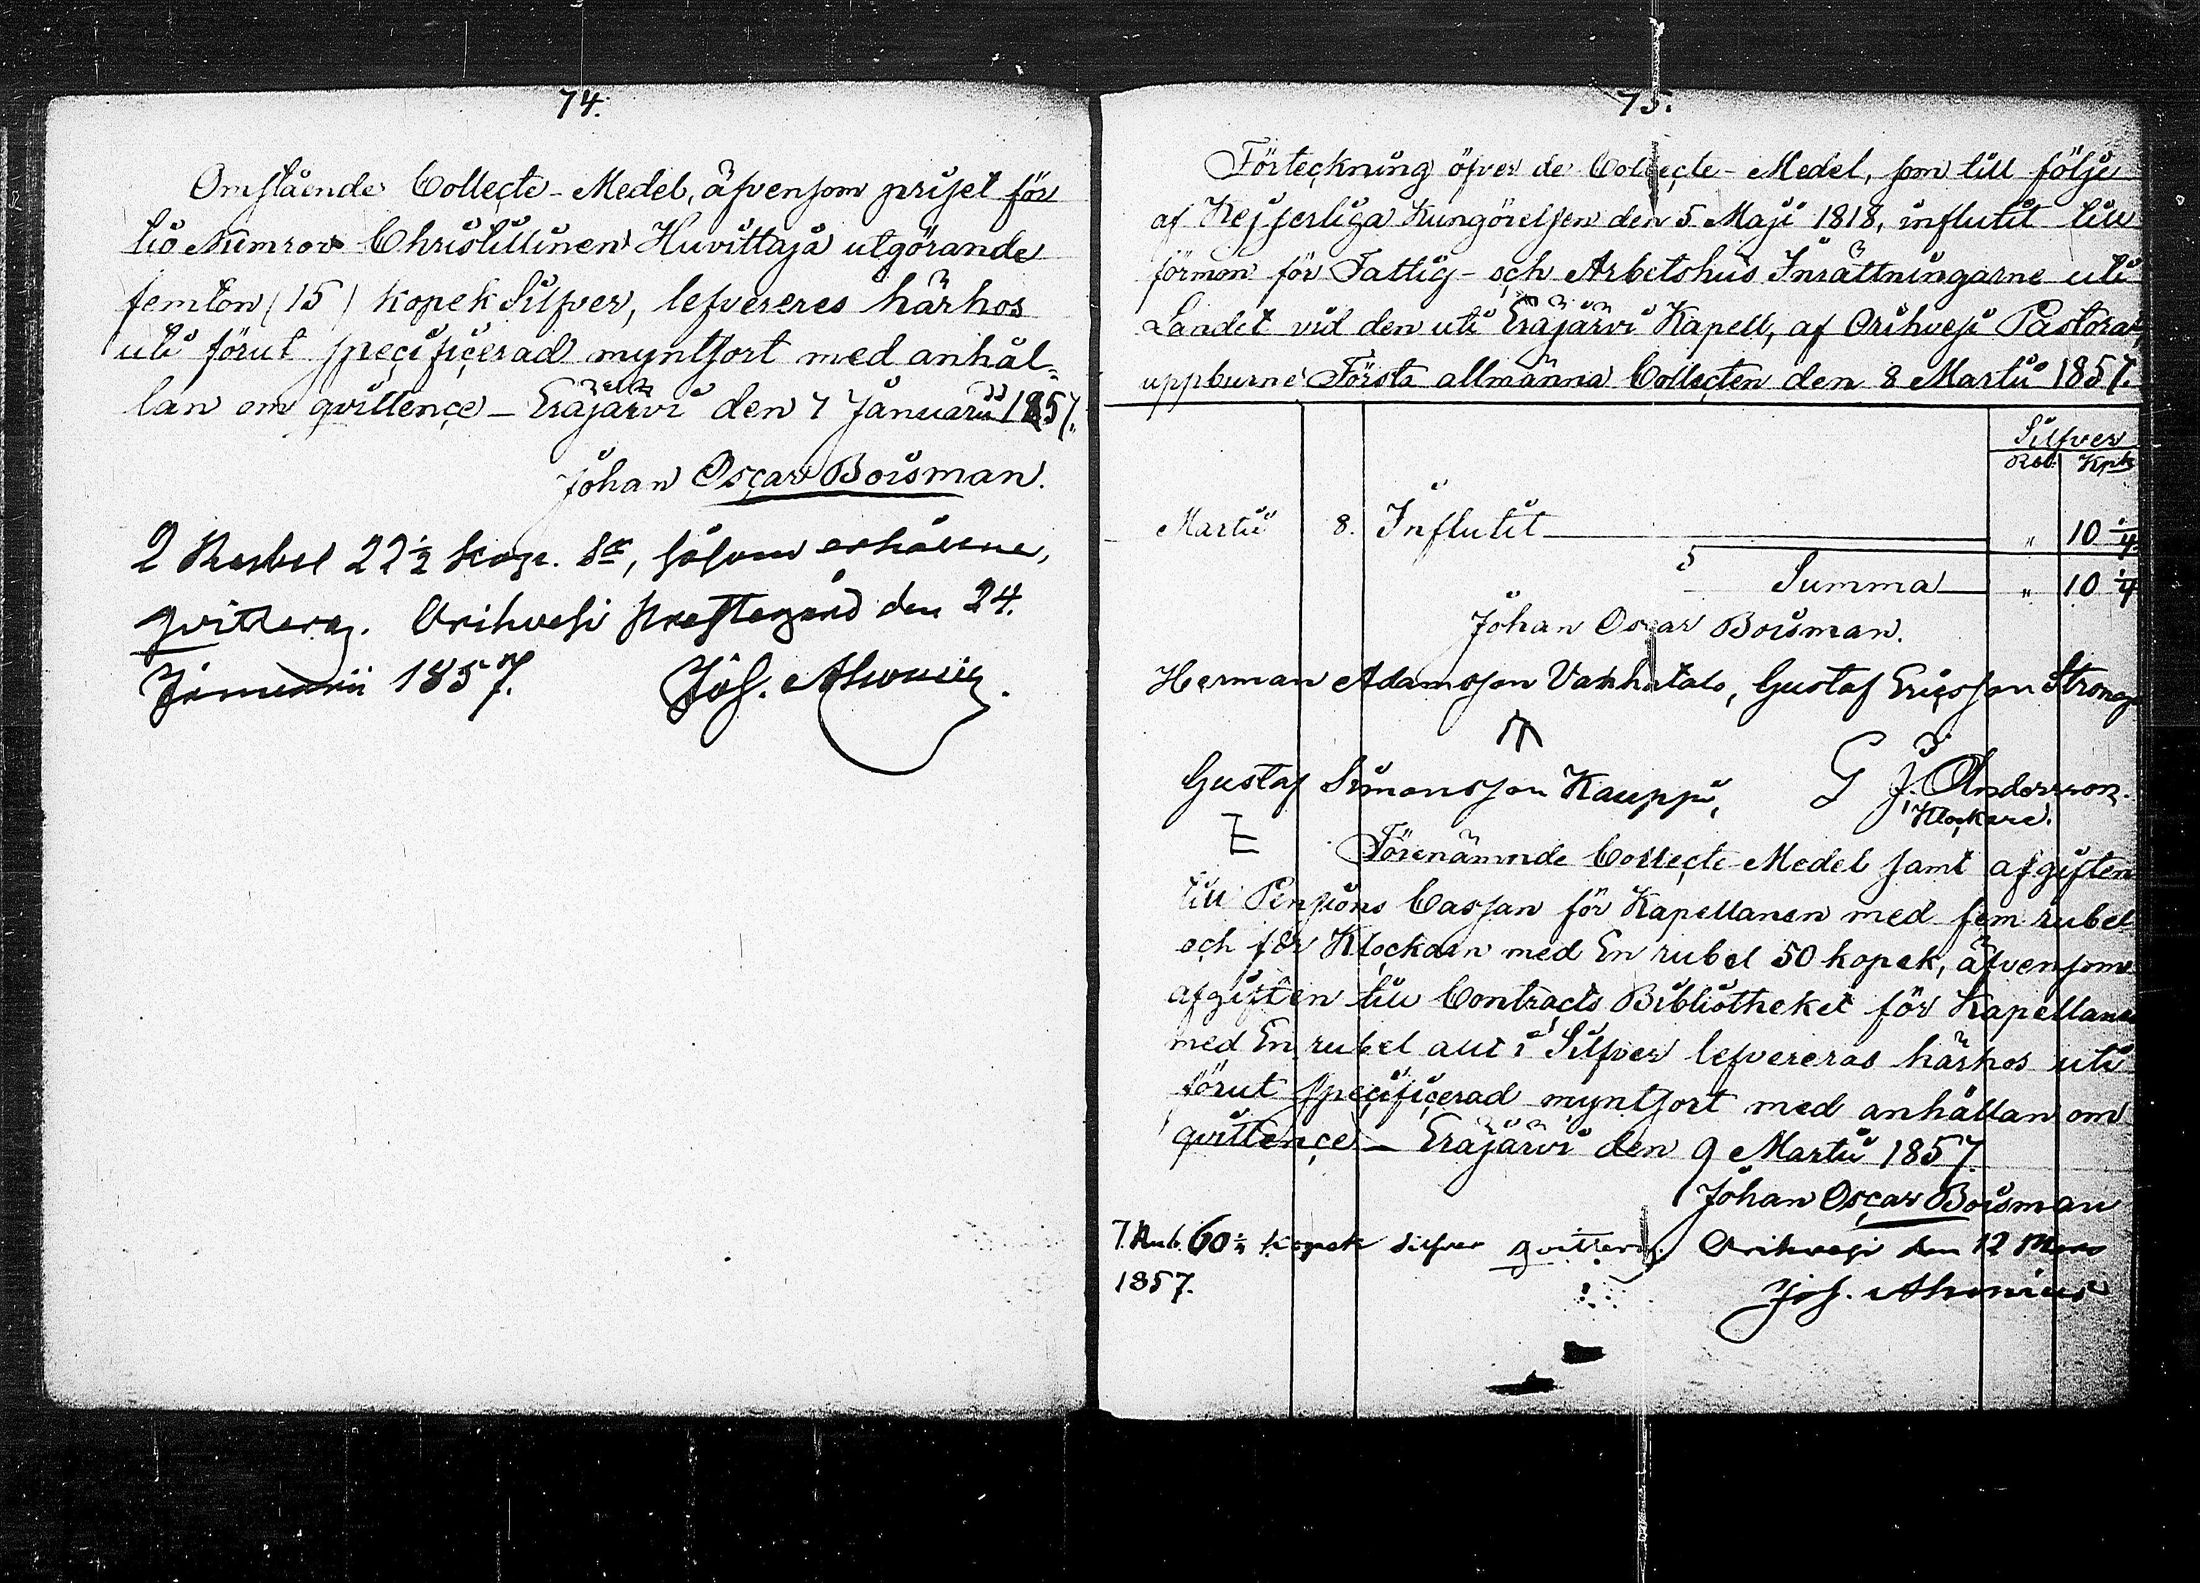 74.
Omstående Collecte-Medel, äfvensom priset för
tio Numror Christillinen Huvittaja utgörande
femton (15) kopek Silfver, lefvereres härhos
uti förut specificerad myntsort med anhål-
lan om qvittence — Eräjärvi den 7 Januarii 1857.
Johan Oscar Boisman.
2 Rubel 22½ kop. Sr, såsom erhållne,
qvitteras. Orihvesi Prestegård den 24.
Januarii 1857. Joh. Ahonius.
75.
Förteckning öfver de Collecte-Medel, som till följe
af Kejserliga Kungörelsen den 5 Maji 1818, influtit till
förmon för Fattig- och Arbetshus Inrättningarne uti
Landet vid den uti Eräjärvi Kapell, af Orihvesi Pastorat,
uppburne Första allmänna Collecten den 8 Martii 1857.
Silfver
Rbl. Kpk
Martii 8. Influtit " 10 ¼
Summa " 10 ¼
Johan Oscar Boisman.
Herman Adamsson Vahhatalo, Gustaf Ericsson Strong
Gustaf Simonsson Kauppi, G J. Andersson.
Klockare.
E Förenämnde Collecte-Medel samt afgiften
till Pensions Cassan för Kapellanen med fem rubel
och för Klockarn med En rubel 50 kopek, äfvensom
afgiften till Contracts Bibliotheket för Kapellanen
med En rubel allt i Silfver lefvereras härhos uti
förut specificerad myntsort med anhållan om
qvittence — Eräjärvi den 9 Martii 1857.
Johan Oscar Boisman
7. Rub. 60¼ kopek silfver qvitteras. Orihvesi den 12 Mars
1857. Joh. Ahonius